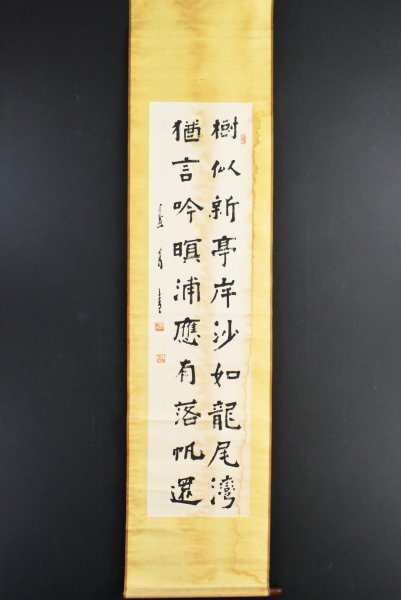 樹似新亭岸沙如龍尾灣
猶言吟暝浦應有落帆還